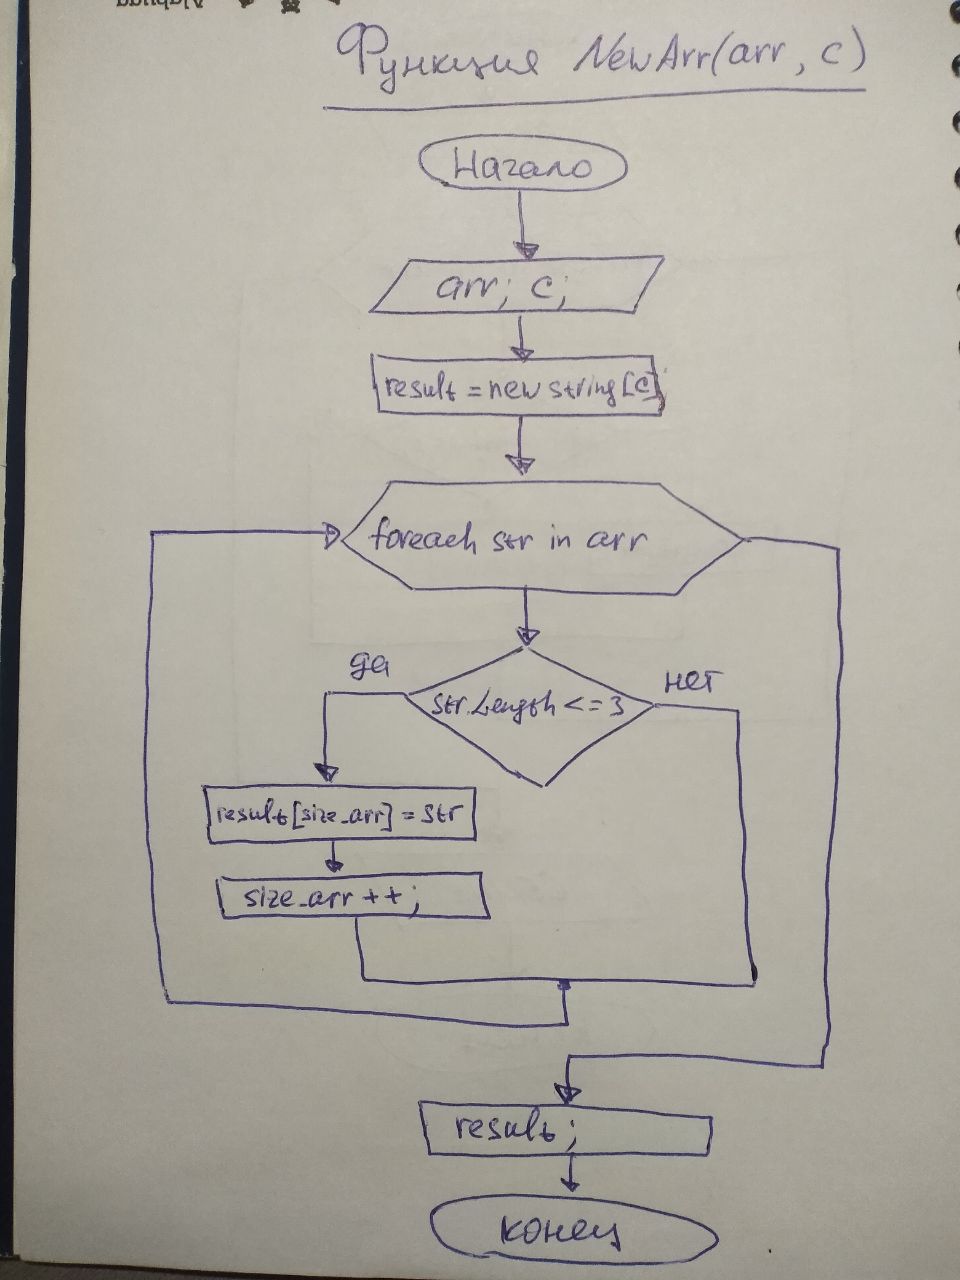 Функция NewArr(arr, c)
Начало
arr; c;
result = new string[c];
foreach str in arr
да
нет
str.Length <= 3
result[size_arr] = str
size_arr ++;
result;
конец